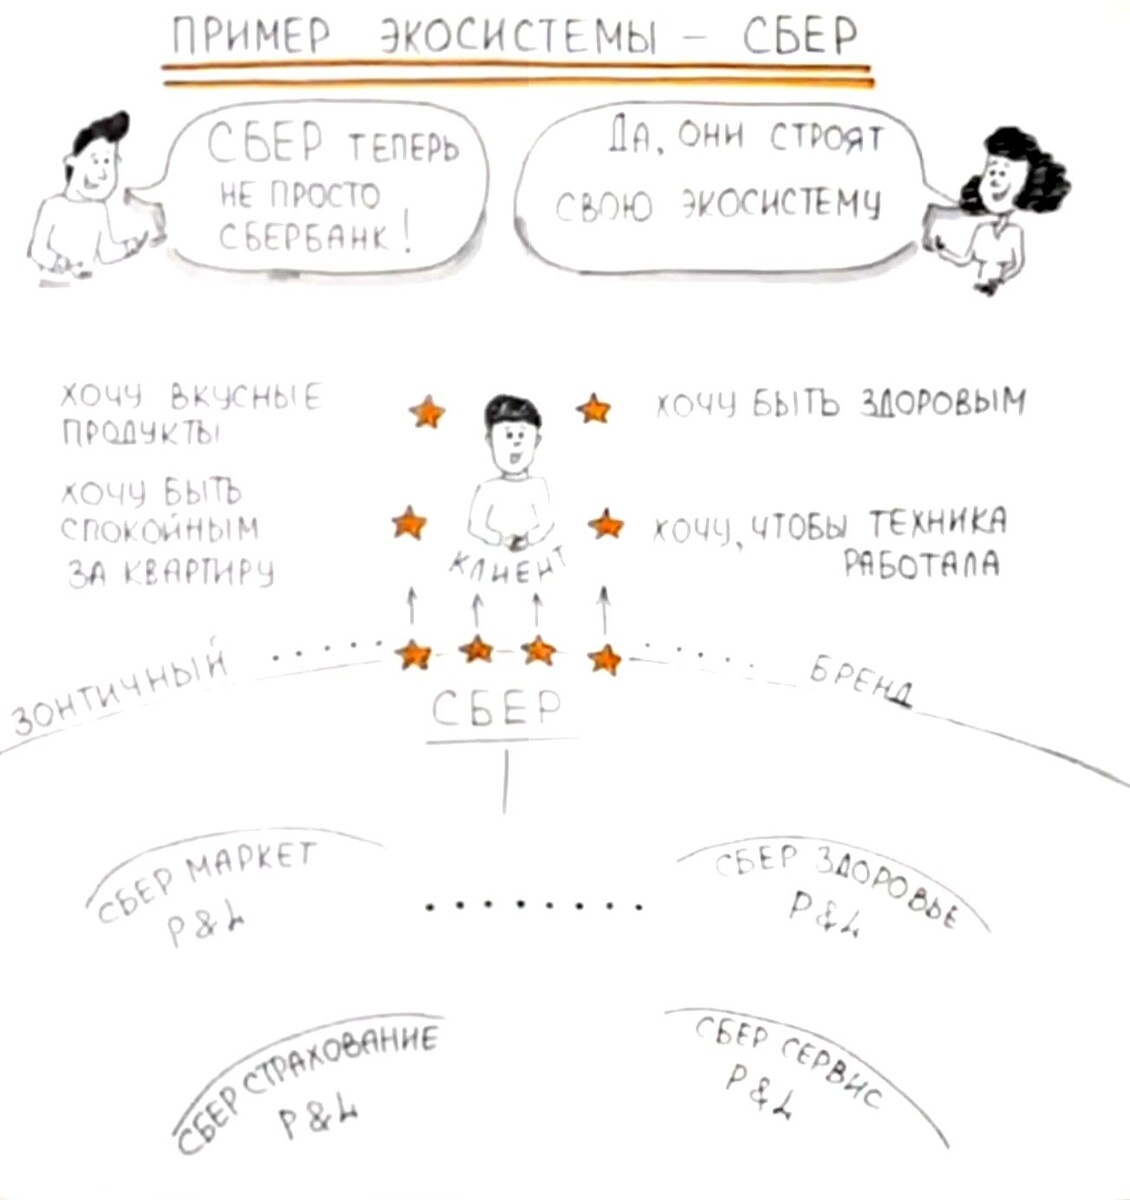 ПРИМЕР ЭКОСИСТЕМЫ – СБЕР
СБЕР ТЕПЕРЬ
НЕ ПРОСТО
СБЕРБАНК!
ДА, ОНИ СТРОЯТ
СВОЮ ЭКОСИСТЕМУ
ХОЧУ ВКУСНЫЕ
ПРОДУКТЫ
ХОЧУ БЫТЬ ЗДОРОВЫМ
ХОЧУ БЫТЬ
СПОКОЙНЫМ
ЗА КВАРТИРУ
ХОЧУ, ЧТОБЫ ТЕХНИКА
РАБОТАЛА
КЛИЕНТ
ЗОНТИЧНЫЙ ..... ..... БРЕНД
СБЕР
СБЕР МАРКЕТ
P & L
СБЕР ЗДОРОВЬЕ
P & L
СБЕР СТРАХОВАНИЕ
P & L
СБЕР СЕРВИС
P & L